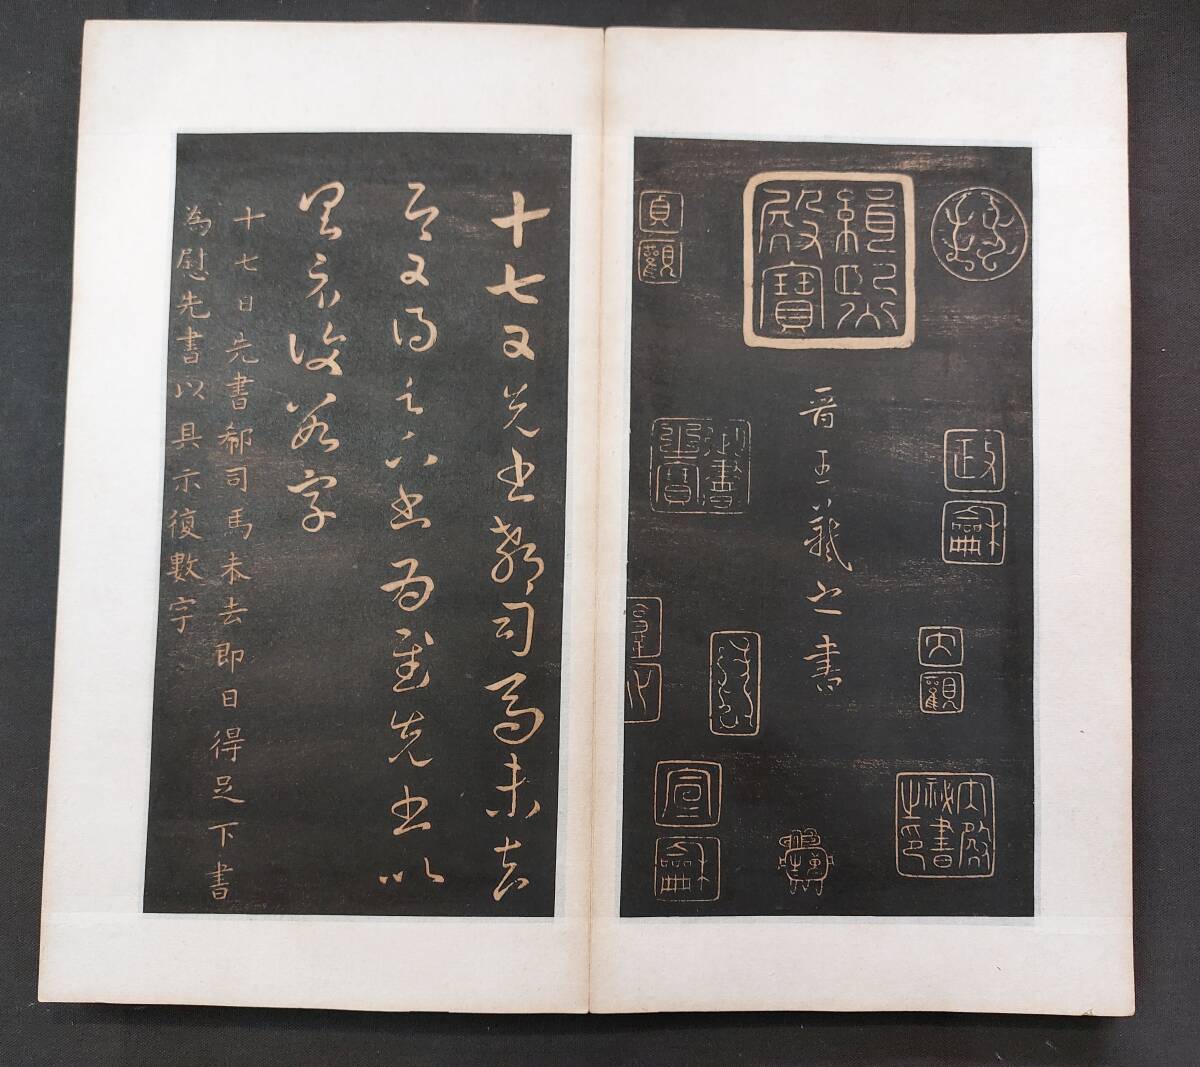 政龢
大觀
内殿祕書之印
緝熙殿寶
晋王羲之書
貞觀
宣龢
十七日先書郗司馬未去
即日得足下書為慰先書以
具示復數字
十七日先書郗司馬未去即日得足下書
為慰先書以具示復數字